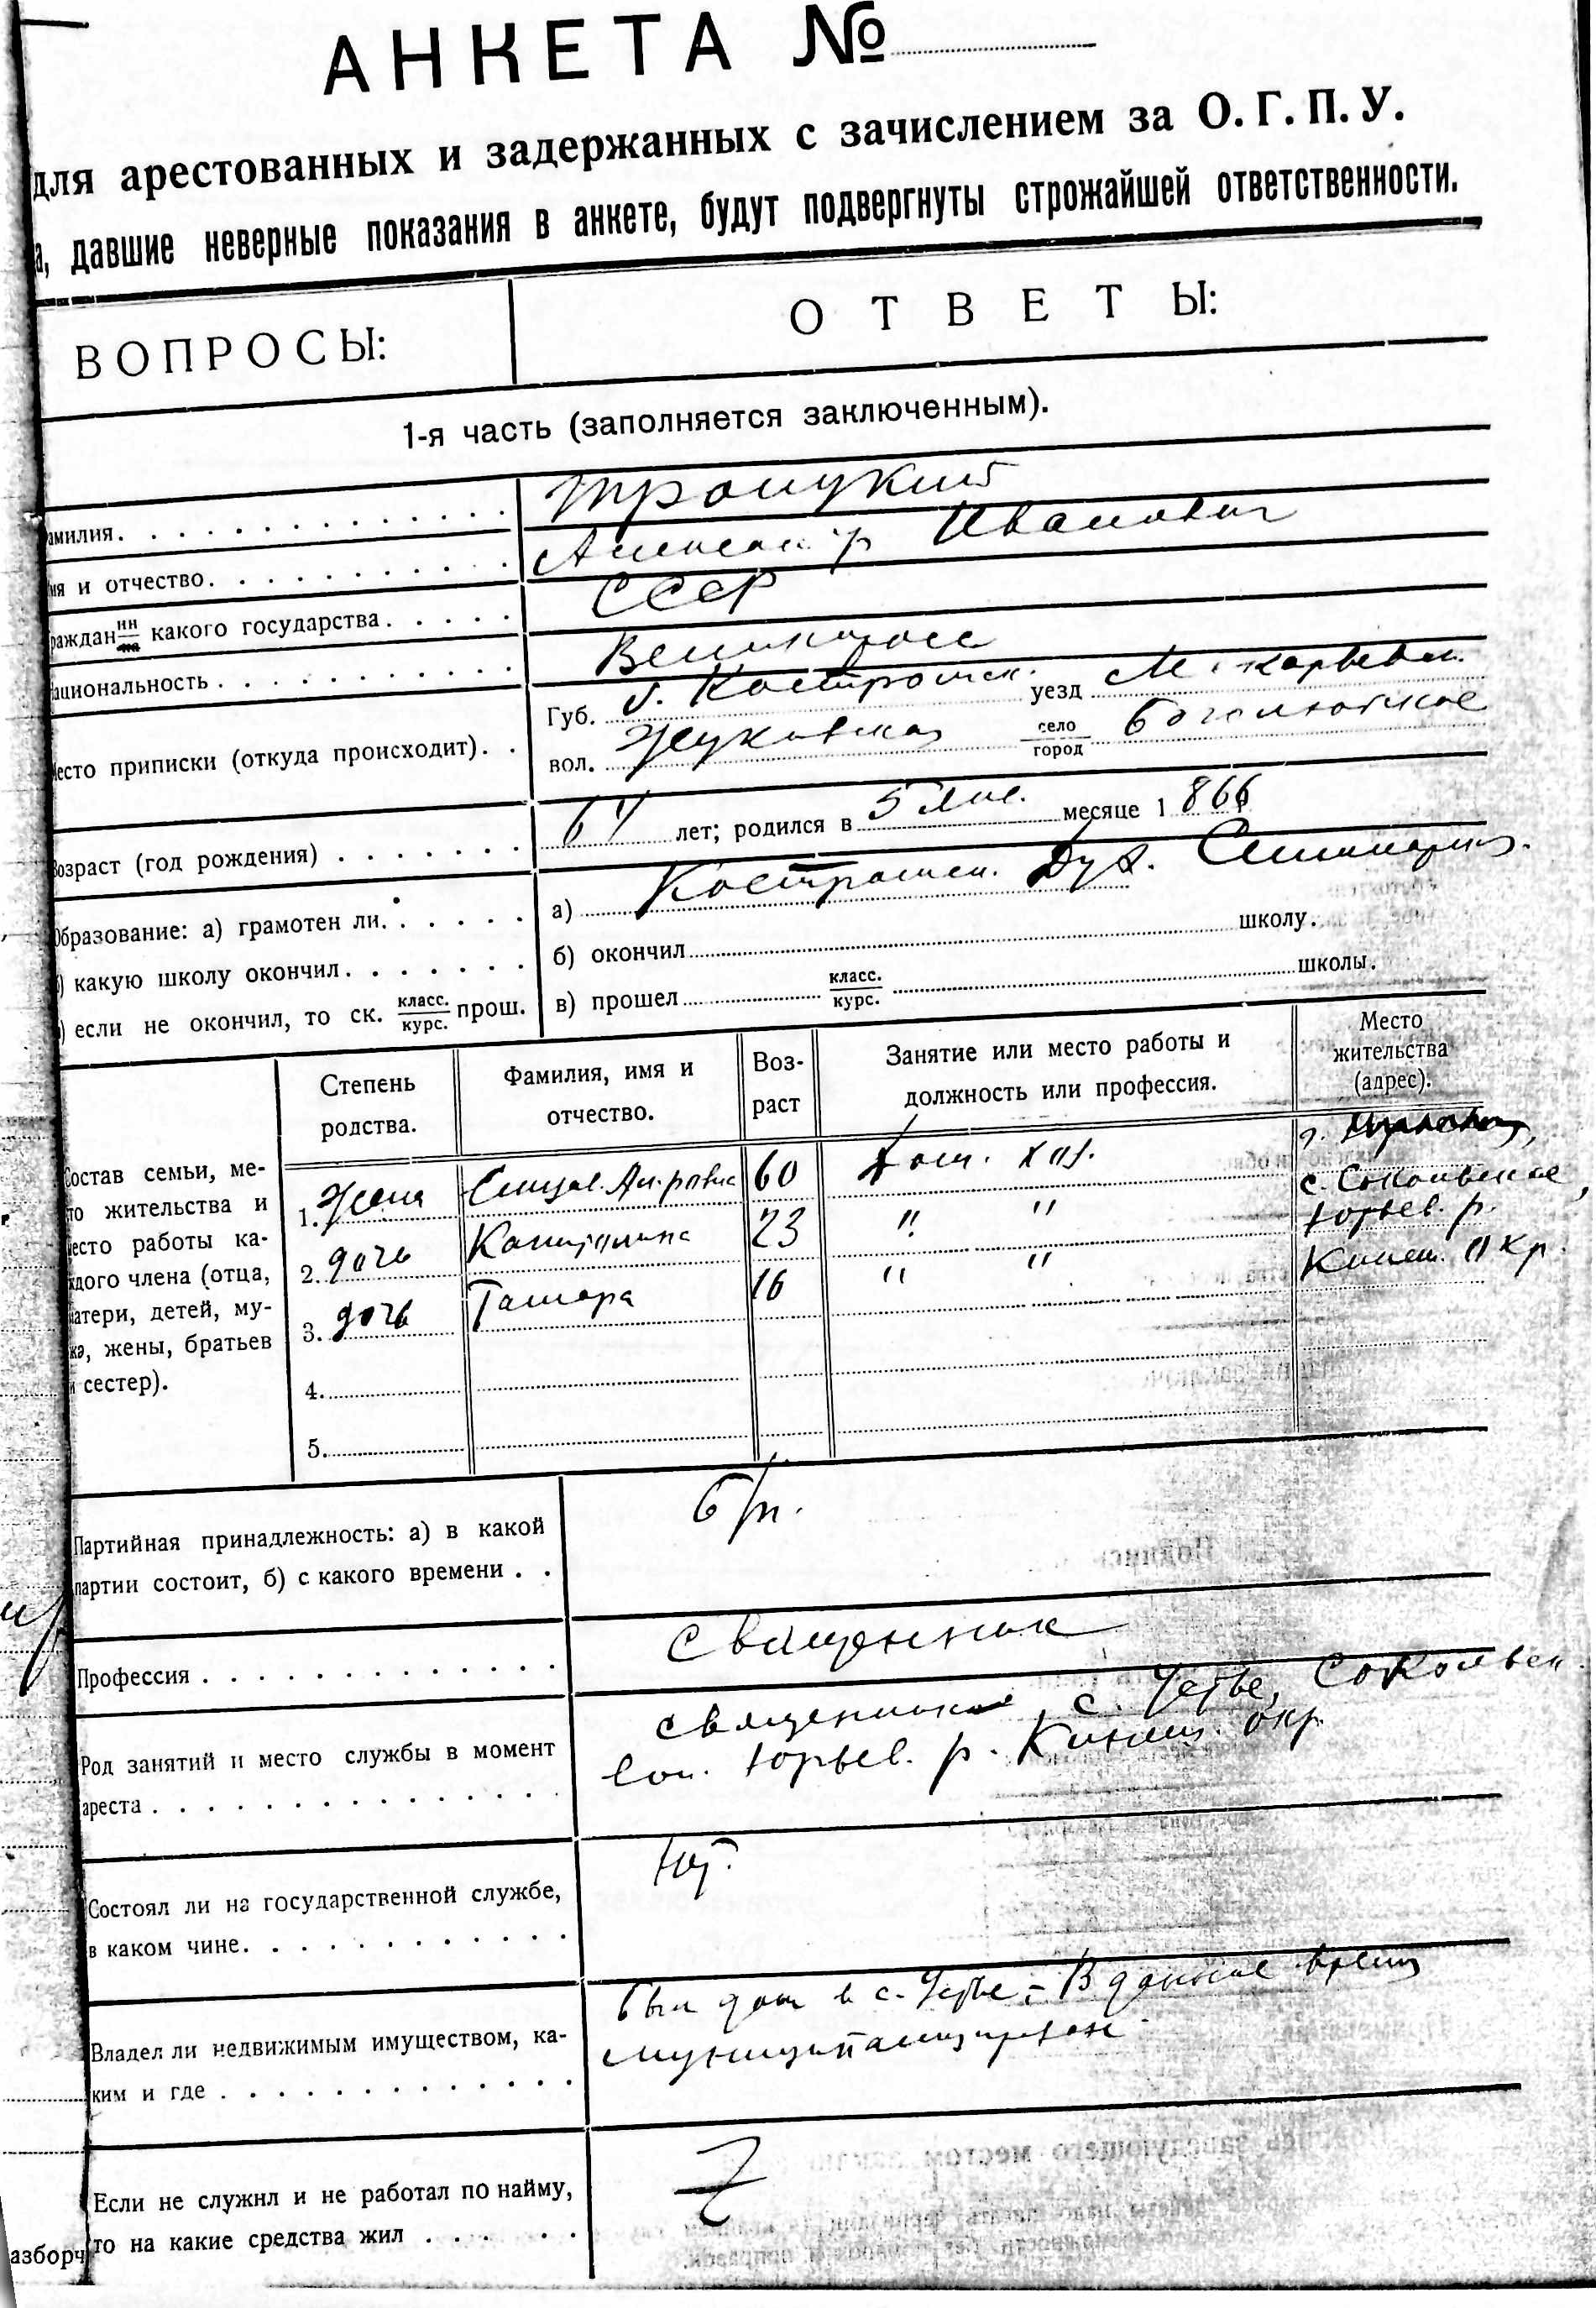 АНКЕТА №
для арестованных и задержанных с зачислением за О. Г. П. У.
а, давшие неверные показания в анкете, будут подвергнуты строжайшей ответственности.
ВОПРОСЫ:
ОТВЕТЫ:
1-я часть (заполняется заключенным).
амилия. Троицкий
мя и отчество. Александр Иванович
раждан ин/на какого государства. СССР
ациональность Великоросс
есто приписки (откуда происходит). Губ. б. Костромск. уезд Макарьевск.
вол. Жуковская село/город Боголюбское
озраст (год рождения) 64 лет; родился в 5 месяце 1866
Образование: а) грамотен ли. а) Костромск. Дух. Семинария.
) какую школу окончил. б) окончил школу.
) если не окончил, то ск. класс./курс. прош. в) прошел класс./курс. школы.
Состав семьи, ме-
то жительства и
место работы ка-
ждого члена (отца,
матери, детей, му-
жа, жены, братьев
и сестер).
Степень родства. Фамилия, имя и отчество. Воз-раст Занятие или место работы и должность или профессия. Место жительства (адрес).
1. Жена 60 Дом. хоз.
2. дочь Капитолина 23 " "
3. дочь Тамара 16 " "
4.
5.
с. Сокольское,
Юрьев. р.
Кинеш. окр.
Партийная принадлежность: а) в какой
партии состоит, б) с какого времени
б/п.
Профессия священник
Род занятий и место службы в момент
ареста
священник с. Устье, Сокольск.
вол. Юрьев. р. Кинеш. окр.
Состоял ли на государственной службе,
в каком чине.
Нет.
Владел ли недвижимым имуществом, ка-
ким и где
был дом в с. Устье, - В данное время
муниципализирован
Если не служил и не работал по найму,
то на какие средства жил
азборч